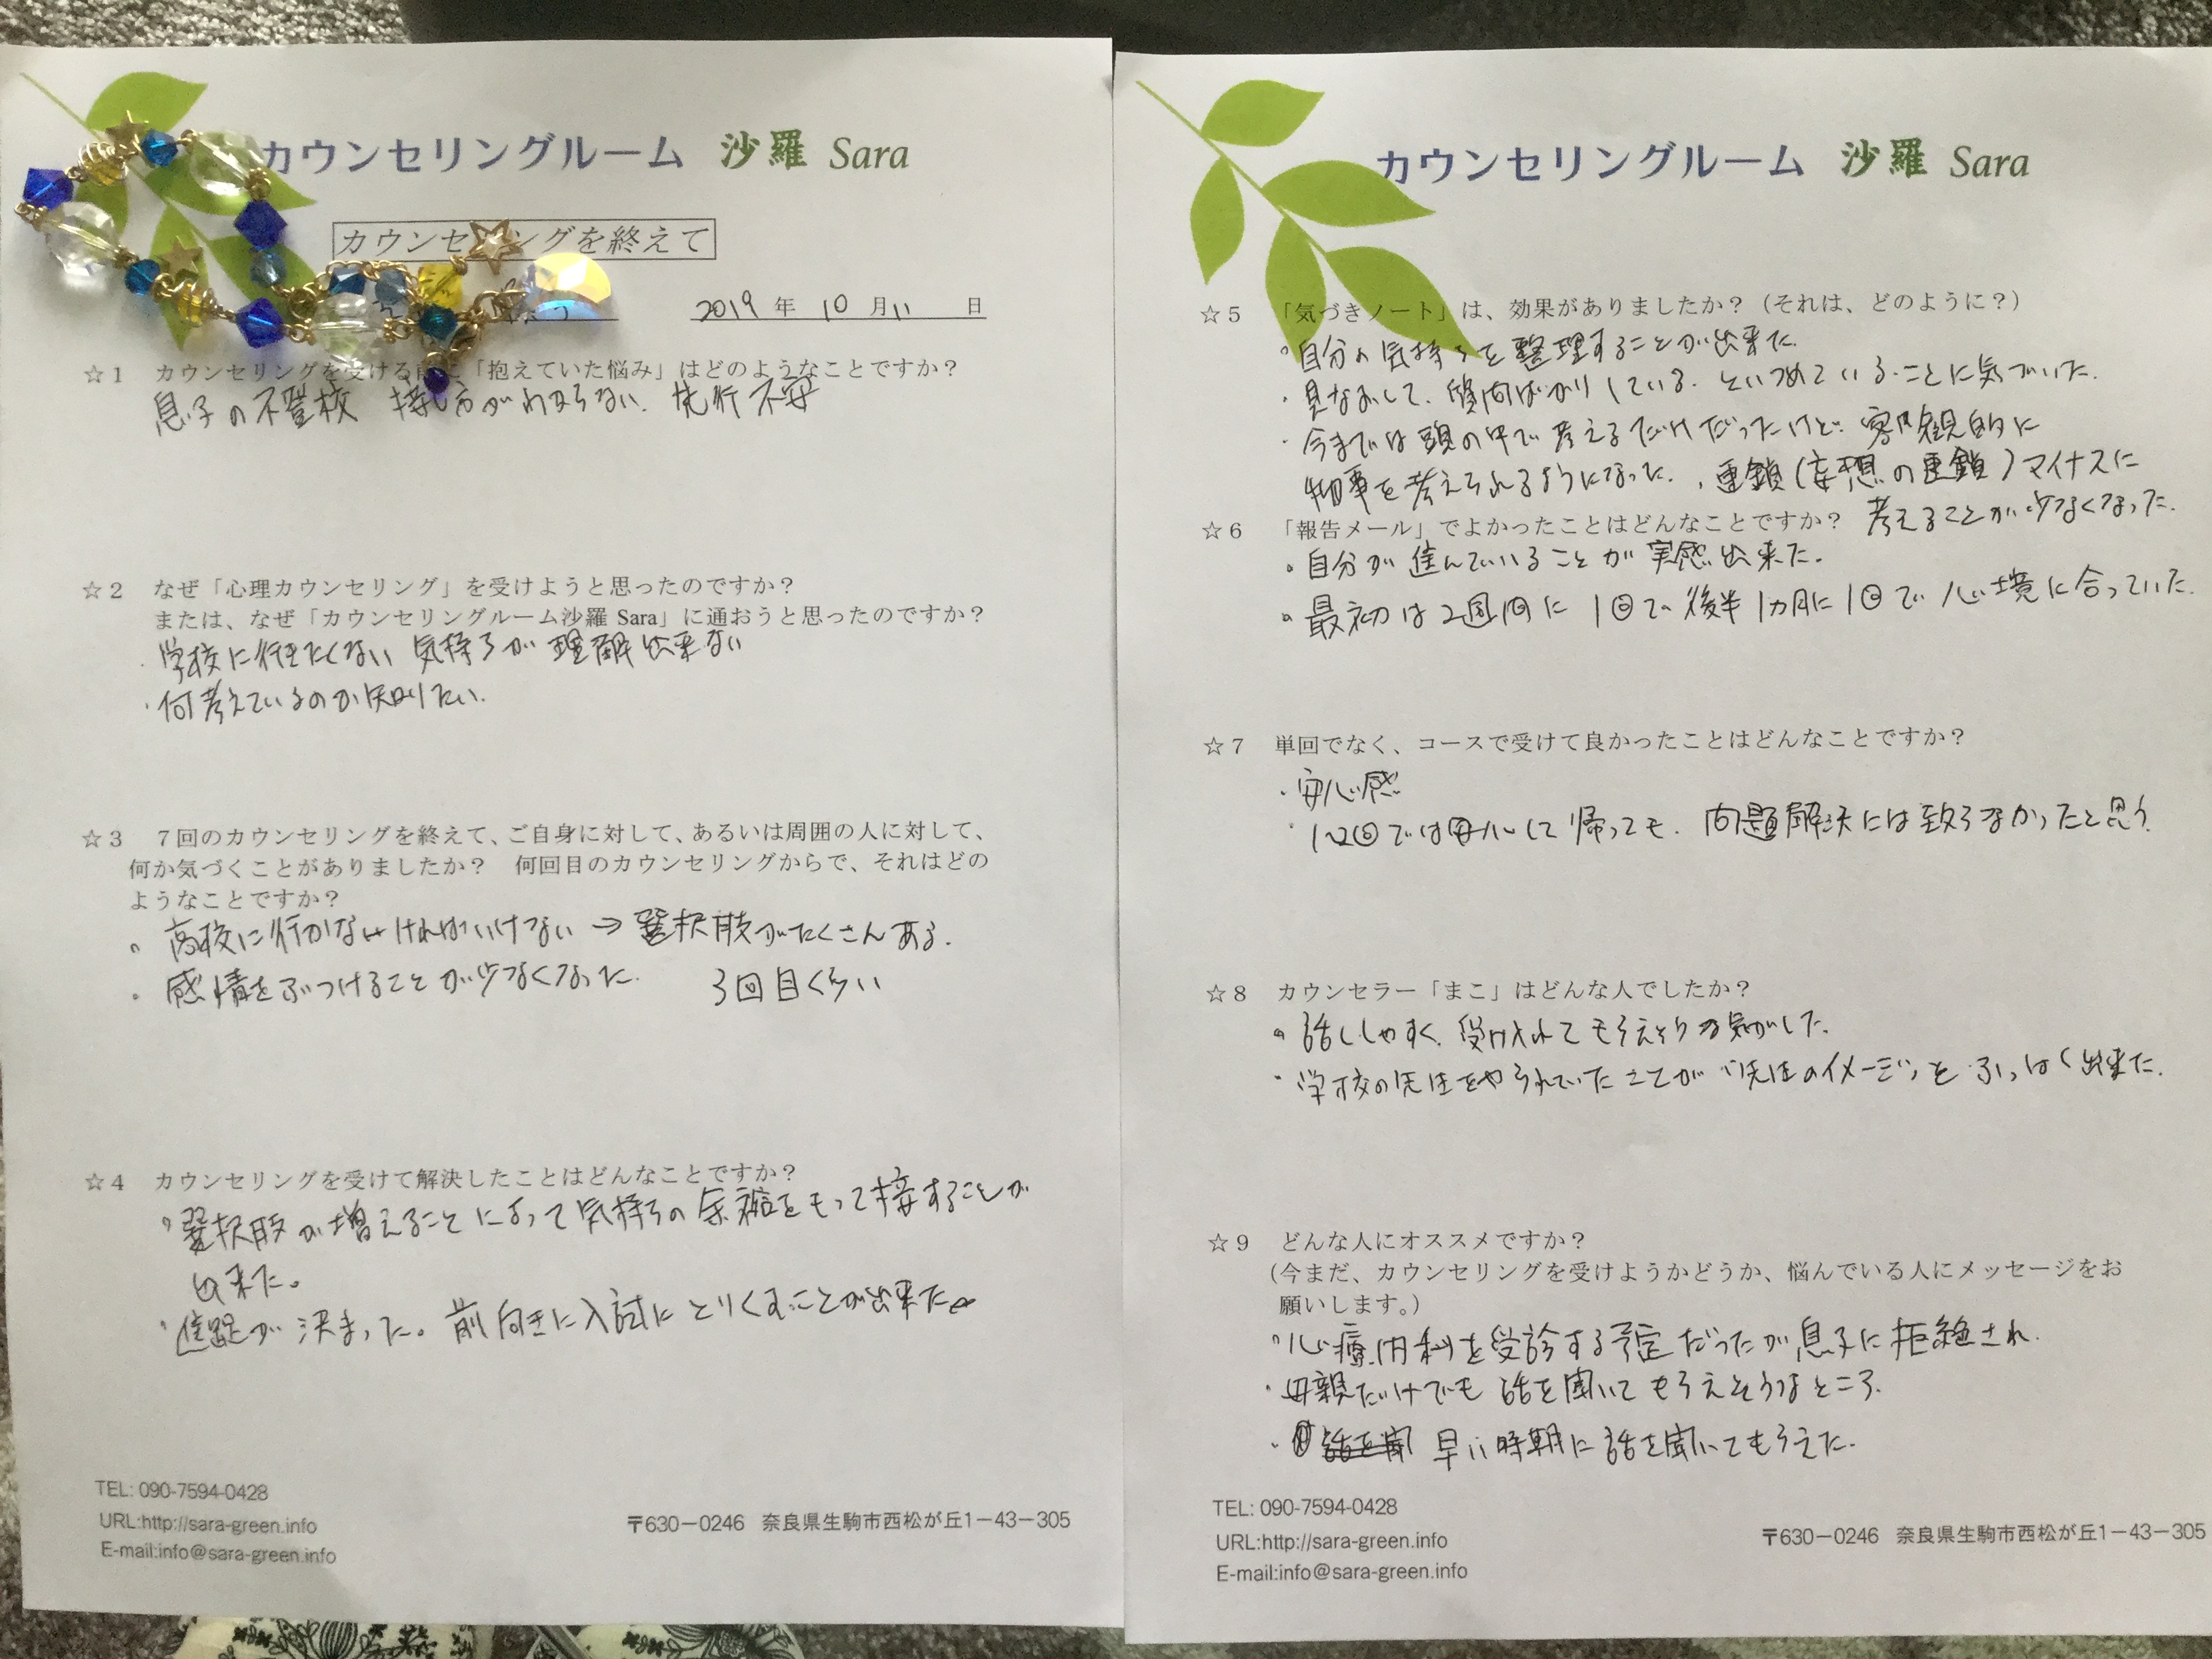 カウンセリングルーム 沙羅 Sara
カウンセリングを終えて
2019 年 10 月 11 日
☆1 カウンセリングを受ける前に「抱えていた悩み」はどのようなことですか？
息子の不登校 接し方がわからない. 先行不安
☆2 なぜ「心理カウンセリング」を受けようと思ったのですか？
または、なぜ「カウンセリングルーム沙羅 Sara」に通おうと思ったのですか？
・学校に行きたくない 気持ちが理解出来ない
・何考えているのか知りたい.
☆3 7回のカウンセリングを終えて、ご自身に対して、あるいは周囲の人に対して、
何か気づくことがありましたか？ 何回目のカウンセリングからで、それはどの
ようなことですか？
。高校に行かなければいけない → 選択肢がたくさんある.
・感情をぶつけることが少なくなった. 3回目くらい
☆4 カウンセリングを受けて解決したことはどんなことですか？
・選択肢が増えることによって気持ちの余裕をもって接することが
出来た。
・進路が決まった。前向きに入試にとりくむことが出来た
TEL: 090-7594-0428
URL:http://sara-green.info
E-mail:info@sara-green.info
〒630－0246 奈良県生駒市西松が丘1－43－305
カウンセリングルーム 沙羅 Sara
☆5 「気づきノート」は、効果がありましたか？（それは、どのように？）
。自分の気持ちを整理することが出来た.
・見なおして、質問ばかりしている. といつめていることに気づいた.
・今までは頭の中で考えるだけだったけど 客観的に
物事を考えられるようになった. 連鎖(妄想の連鎖)マイナスに
考えることが少なくなった.
☆6 「報告メール」でよかったことはどんなことですか？
・自分が進んでいることが実感出来た.
・最初は2週間に1回で後半1カ月に1回で心境に合っていた.
☆7 単回でなく、コースで受けて良かったことはどんなことですか？
・安心感
・1〜2回では安心して帰っても. 問題解決には致らなかったと思う.
☆8 カウンセラー「まこ」はどんな人でしたか？
。話ししやすく. 受け入れてもらえそうな気がした.
・学校の先生をやられていたことが"先生のイメージ"をふっしょく出来た.
☆9 どんな人にオススメですか？
(今まだ、カウンセリングを受けようかどうか、悩んでいる人にメッセージをお
願いします。)
・心療内科を受診する予定だったが息子に拒絶され.
・母親だけでも話を聞いてもらえそうなところ.
・早い時期に話を聞いてもらえた.
TEL: 090-7594-0428
URL:http://sara-green.info
E-mail:info@sara-green.info
〒630－0246 奈良県生駒市西松が丘1－43－305